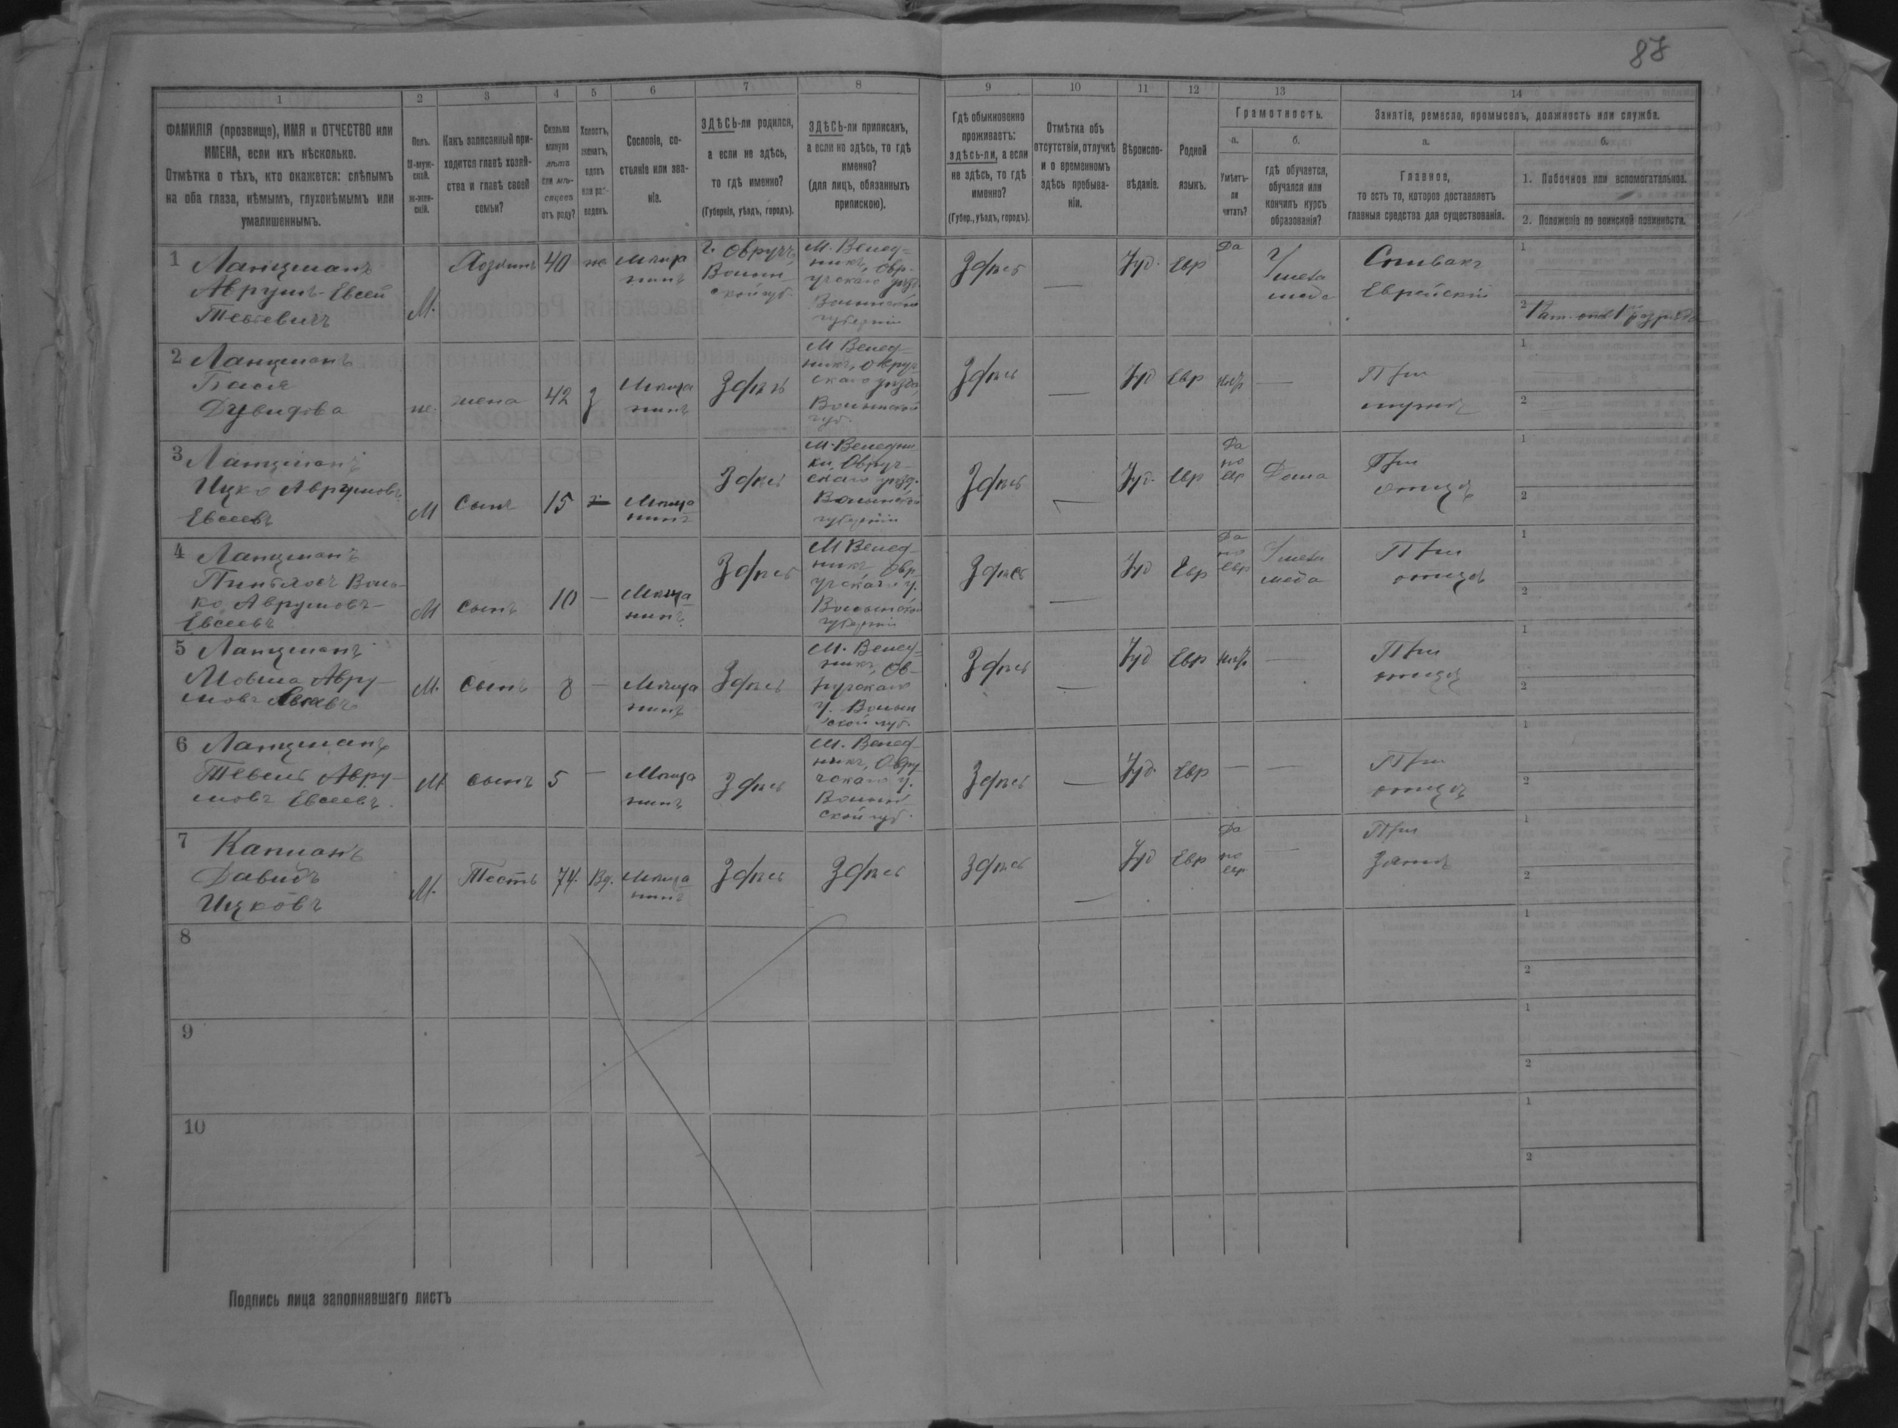 88
1 2 3 4 5 6 7 8 9 10 11 12 13 14
ФАМИЛІЯ (прозвище), ИМЯ и ОТЧЕСТВО или
ИМЕНА, если ихъ нѣсколько.
Отмѣтка о тѣхъ, кто окажется: слѣпымъ
на оба глаза, нѣмымъ, глухонѣмымъ или
умалишеннымъ.
Полъ.
М-муж-
ской.
ж-жен-
скій.
Какъ записанный при-
ходится главѣ хозяй-
ства и главѣ своей
семьи?
Сколько
минуло
лѣтъ
или мѣ-
сяцевъ
отъ роду?
Холостъ,
женатъ,
вдовъ
или раз-
веденъ.
Сословіе, со-
стояніе или зва-
ніе.
ЗДѢСЬ-ли родился,
а если не здѣсь,
то гдѣ именно?
(Губернія, уѣздъ, городъ).
ЗДѢСЬ-ли приписанъ,
а если не здѣсь, то гдѣ
именно?
(для лицъ, обязанныхъ
припискою).
Гдѣ обыкновенно
проживаетъ:
здѣсь-ли, а если
не здѣсь, то гдѣ
именно?
(Губер., уѣздъ, городъ).
Отмѣтка объ
отсутствіи, отлучкѣ
и о временномъ
здѣсь пребыва-
ніи.
Вѣроиспо-
вѣданіе.
Родной
языкъ.
Грамотность.
а.
Умѣетъ-
ли
читать?
б.
гдѣ обучается,
обучался или
кончилъ курсъ
образованія?
Занятіе, ремесло, промыселъ, должность или служба.
а.
Главное,
то есть то, которое доставляетъ
главныя средства для существованія.
б.
1. Побочное или вспомогательное.
2. Положеніе по воинской повинности.
1 Ланцманъ
Аврумъ-Евсей
Тевьевичъ
М.
Хозяинъ
40
ж
Мѣща
нинъ
г. Овручъ,
Волын
ской губ.
М. Велед-
никъ, Овр-
учскаго уѣзд.
Волынской
губерніи
Здѣсь
—
Іуд.
Евр
Да
У мела
меда
Спивакъ
Еврейскій
1
2
2 Ланцманъ
Бася
Дувидова
ж.
жена
42
з
Мѣща
нинъ
Здѣсь
М Велед-
никъ, Овруч-
скаго уѣзда,
Волынской
губ.
Здѣсь
—
Іуд
Евр
Нѣтъ
—
При
мужѣ
1
2
3 Ланцманъ
Ицко Аврумовъ-
Евсеевъ
М
Сынъ
15
Мѣща
нинъ
Здѣсь
М. Веледни
ки, Овруч-
скаго уѣзд.
Волынской
губерніи
Здѣсь
—
Іуд.
Евр
Да
по
евр
Дома
При
отцѣ
1
2
4 Ланцманъ
Воль-
ко Аврумовъ-
Евсеевъ
М
Сынъ
10
—
Мѣща
нинъ
Здѣсь
М Велед-
никъ Овр-
учскаго у.
Волынской
губерніи
Здѣсь
—
Іуд
Евр
Да
по
евр
У мела
меда
При
отцѣ
1
2
5 Ланцманъ
Мовша Авру-
мовъ Евсеевъ
М.
Сынъ
8
—
Мѣща
нинъ
Здѣсь
М. Велед-
никъ, Ов-
ручскаго
у. Волын
ской губ.
Здѣсь
—
Іуд
Евр
Нѣтъ
—
При
отцѣ
1
2
6 Ланцманъ
Тевель Авру-
мовъ Евсеевъ
М
сынъ
5
—
Мѣща
нинъ
Здѣсь
М. Велед-
никъ, Овру
чскаго у.
Волын
ской губ.
Здѣсь
—
Іуд
Евр
—
—
При
отцѣ
1
2
7 Капланъ
Давидъ
Ицковъ
М.
Тесть
74.
Вд.
Мѣща
нинъ
Здѣсь
Здѣсь
Здѣсь
—
Іуд
Евр
Да
по
евр
—
При
Зятѣ
1
2
8
1
2
9
1
2
10
1
2
Подпись лица заполнявшаго листъ